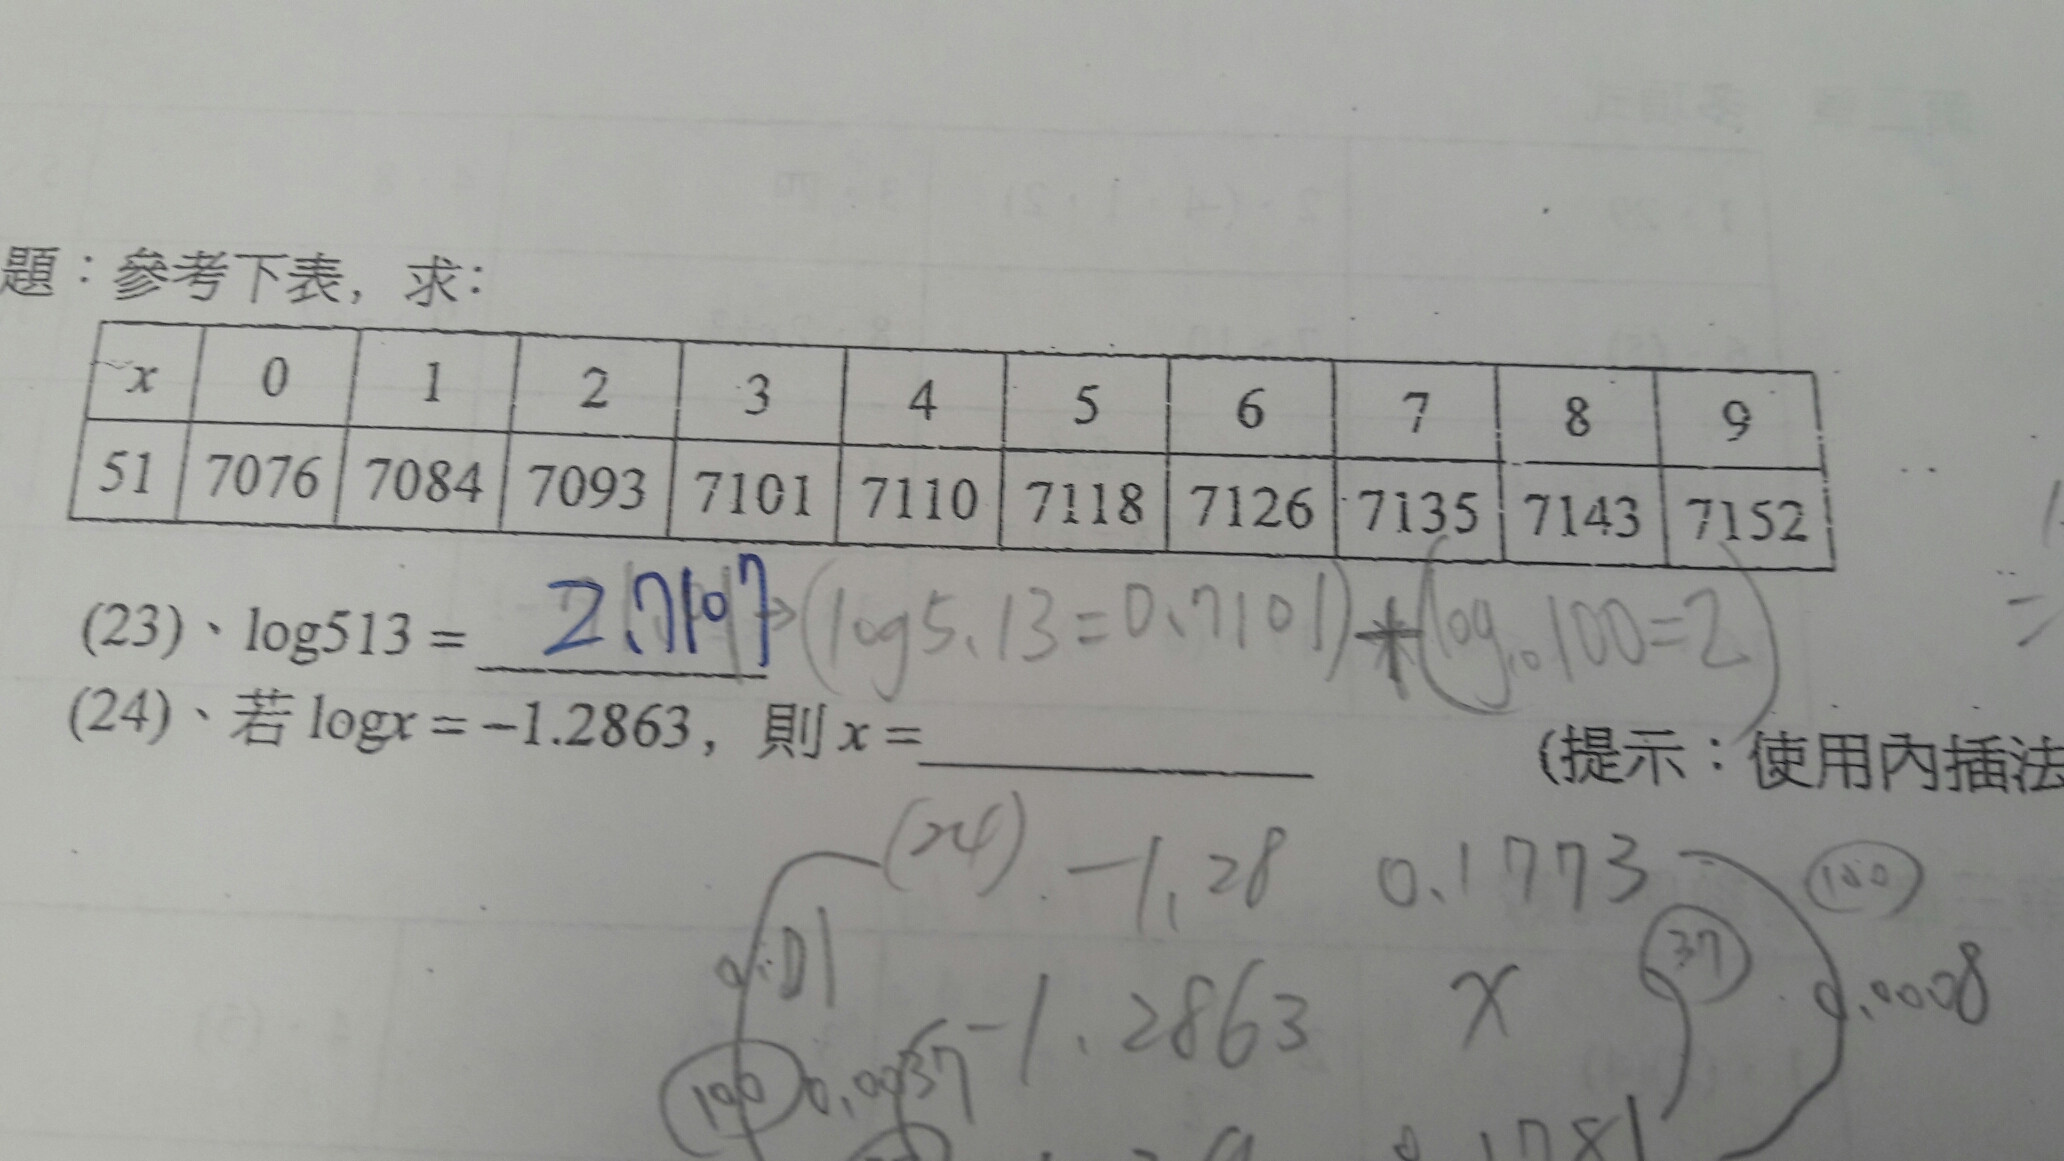 題：參考下表，求：
x 0 1 2 3 4 5 6 7 8 9
51 7076 7084 7093 7101 7110 7118 7126 7135 7143 7152
(23)、log513 = 2.7101 (log5.13=0.7101)+(log₁₀100=2)
(24)、若 logx = −1.2863，則 x = (提示：使用內插法
(24). -1.28 0.1773 100
0.01 37
-1.2863 x 0.0008
100 0.0037
0.1781